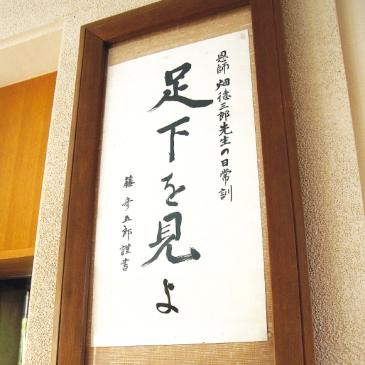 恩師 畑徳三郎先生の日常訓
足下を見よ
藤彦五郎謹書